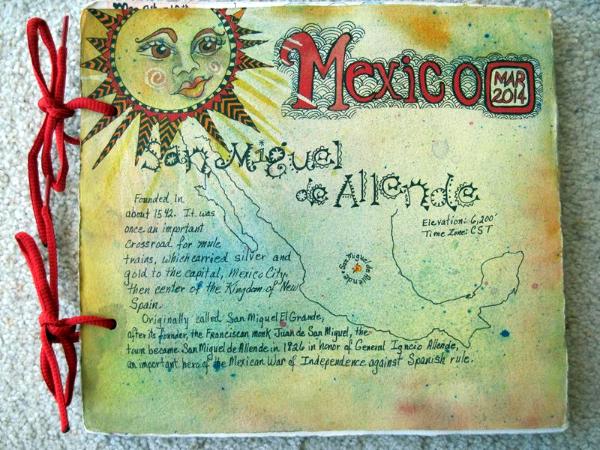 Mexico
MAR
2014
San Miguel
de Allende
Elevation: 6,200'
Time Zone: CST
Founded in
about 1542. It was
once an important
crossroad for mule
trains, which carried silver and
gold to the capital, Mexico City,
then center of the Kingdom of New
Spain.
Originally called San Miguel El Grande,
after its founder, the Franciscan monk Juan de San Miguel, the
town became San Miguel de Allende in 1826 in honor of General Igncio Allende,
an important hero of the Mexican War of Independence against Spanish rule.
San Miguel de Allende